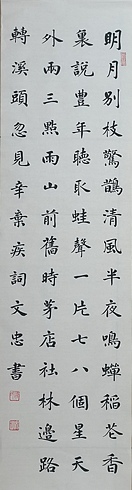 明月別枝驚鵲清風半夜鳴蟬稻花香
裏說豐年聽取蛙聲一片七八個星天
外兩三點雨山前舊時茅店社林邊路
轉溪頭忽見辛棄疾詞文忠書